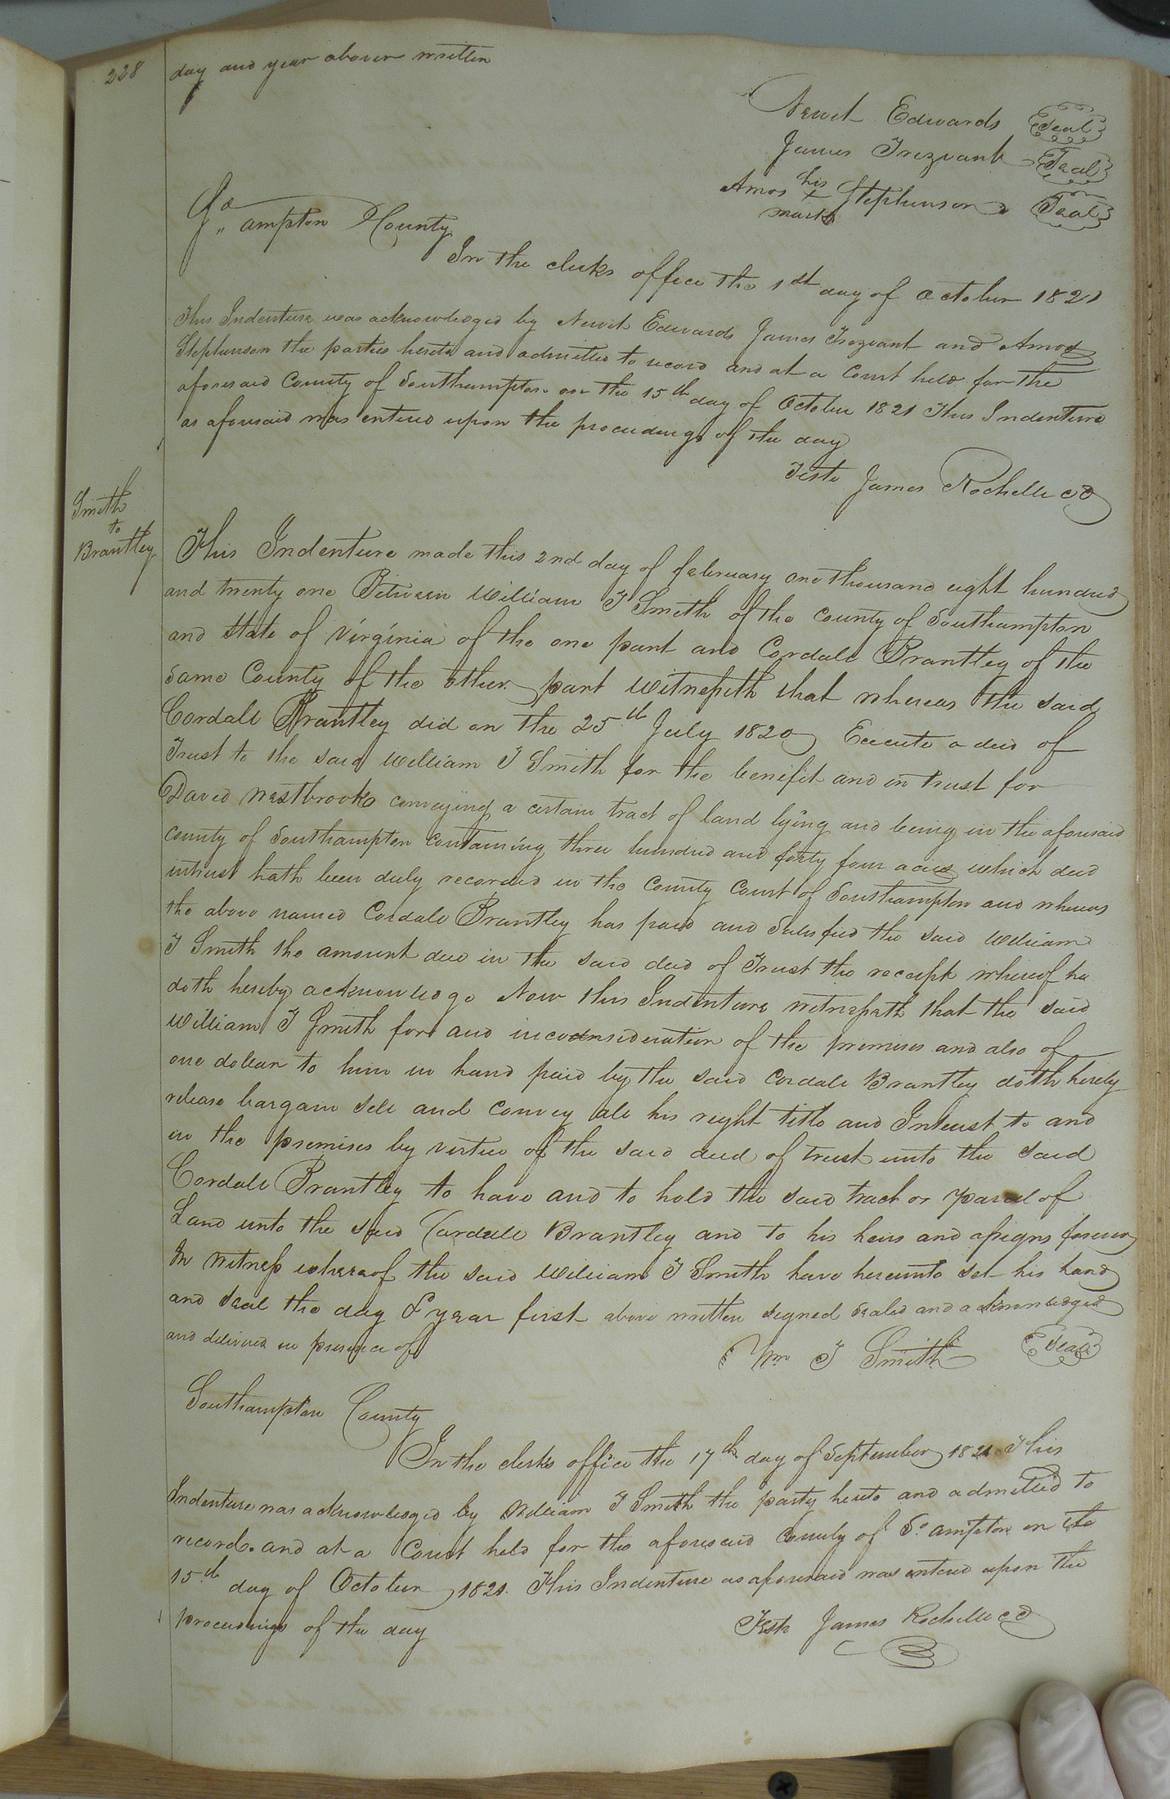 228
day and year above written
Newit Edwards Seal
James Trezvant Seal
Amos his Stephenson Seal
mark
So ampton County
In the clerks office the 1st day of October 1821
This Indenture was acknowledged by Newit Edwards James Trezvant and Amos
Stephenson the parties hereto and admitted to record and at a Court held for the
aforesaid County of Southampton on the 15th day of October 1821 This Indenture
as aforesaid was entered upon the proceedings of the day
Teste James Rochelle CC
Smith
to
Brantley
This Indenture made this 2nd day of february one thousand eight hundred
and twenty one Between William T Smith of the county of Southampton
and State of Virginia of the one part and Cordall Brantley of the
same County of the other part witnesseth that whereas the said
Cordall Brantley did on the 25th July 1820 Execute a deed of
Trust to the said William T Smith for the benifit and in trust for
David Westbrook conveying a certain tract of land lying and being in the aforesaid
county of Southampton containing three hundred and forty four acres which deed
intrust hath been duly recorded in the County Court of Southampton and whereas
the above named Cordall Brantley has paid and Satisfied the said William
T Smith the amount due in the said deed of Trust the receipt whereof he
doth hereby acknowledge Now this Indenture witnesseth that the said
William T Smith for and inconsideration of the premises and also of
one dollar to him in hand paid by the said Cordall Brantley doth hereby
release bargain sell and convey all his right title and Interest to and
in the premises by virtue of the said deed of trust unto the said
Cordall Brantley to have and to hold the said tract or parcel of
Land unto the said Cordall Brantley and to his heirs and assigns forever
In witness whereof the said William T Smith have hereunto set his hand
and seal the day & year first above written signed sealed and acknowledged
and delivered in presence of
Wm T Smith Seal
Southampton County
In the clerks office the 17th day of September 1821 This
Indenture was acknowledged by William T Smith the party hereto and admitted to
record. and at a Court held for the aforesaid County of So ampton on the
15th day of October 1821. This Indenture as aforesaid was entered upon the
proceedings of the day
Teste James Rochelle CC